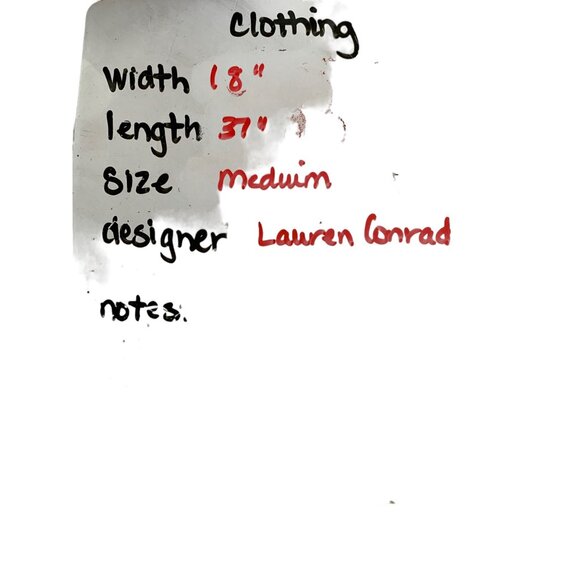 Clothing
Width 18"
length 37"
Size Meduim
designer Lauren Conrad
notes.